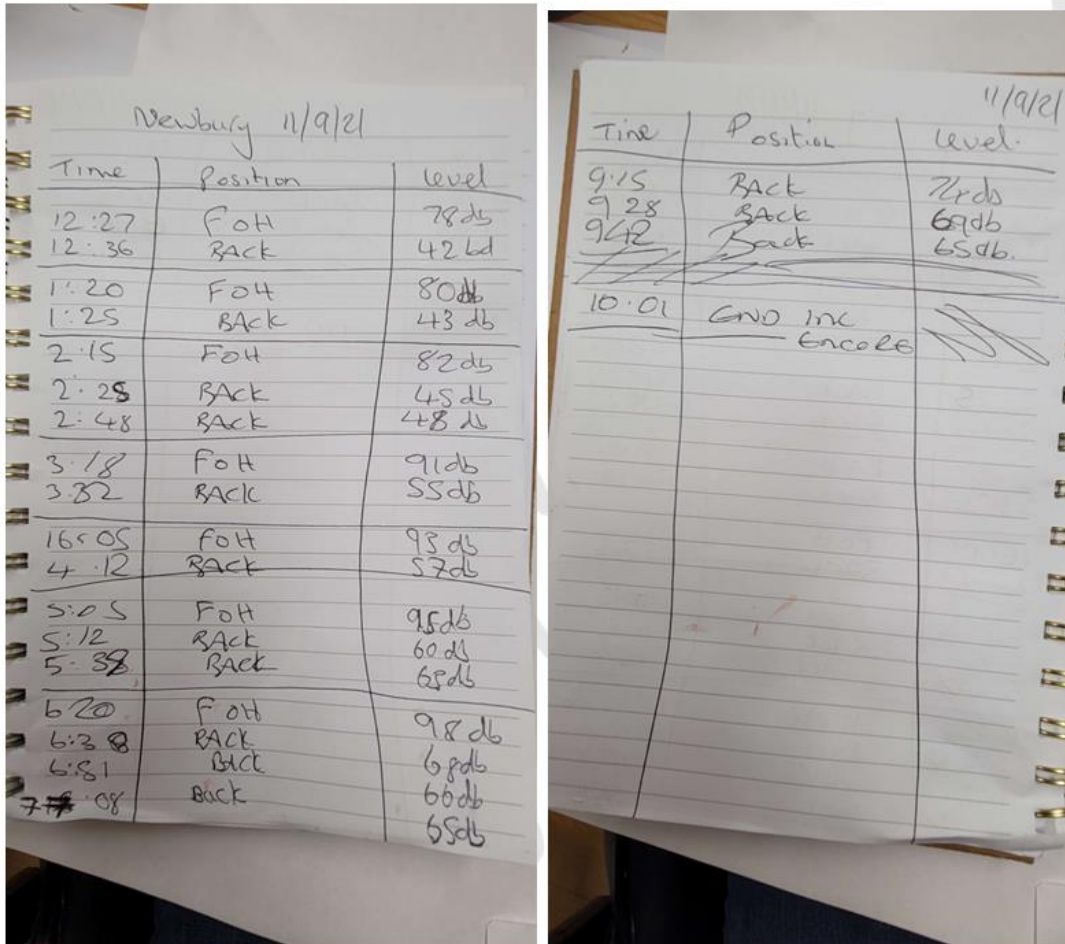 Newbury 11/9/21
Time Position Level
12:27 FOH 78db
12:36 BACK 42bd
1:20 FOH 80db
1:25 BACK 43 db
2.15 FOH 82db
2:25 BACK 45db
2:48 BACK 48 db
3.18 FOH 91db
3.32 BACK 55db
16:05 FOH 93 db
4.12 BACK 57db
5:05 FOH 95db
5:12 BACK 60 db
5.38 BACK 65db
6 20 FOH 98 db
6:38 BACK
6:51 BACK 66db
7.08 BACK 65db
11/9/21
Time Position Level.
9.15 BACK
9 28 BACK 69db
942 Back 65db.
10.01 END INC
ENCORE